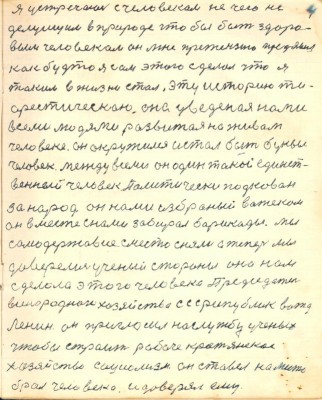 я устречался с человеком не чего не
делущим в природе что бы быть здоро-
вым человеком он мне притензию предявил
как будто я сам этого сделал что я
таким в жизни стал, эту историю ти-
аристическою, она уведеная нами
всеми людями развитая на живам
человеке. он окружился и стал быть
человек между всеми он один такой единст-
венный человек Политически подкован
за народ он нами избраный вотеком
он вместе с нами забирал барикады. мы
самодержавие сместо сняли а теперь мы
доверели ученый стороны она нам
сделала этого человека Председати
вногородного хозяйства ссср республик вожд
Ленин он пригласил на службу ученых
чтобы строить рабоче крестянское
хозяйство социализм он ставел на
брал человека. и доверял ему.